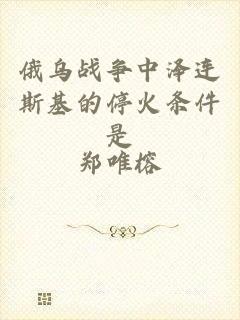 俄乌战争中泽连
斯基的停火条件
是
郑唯榕